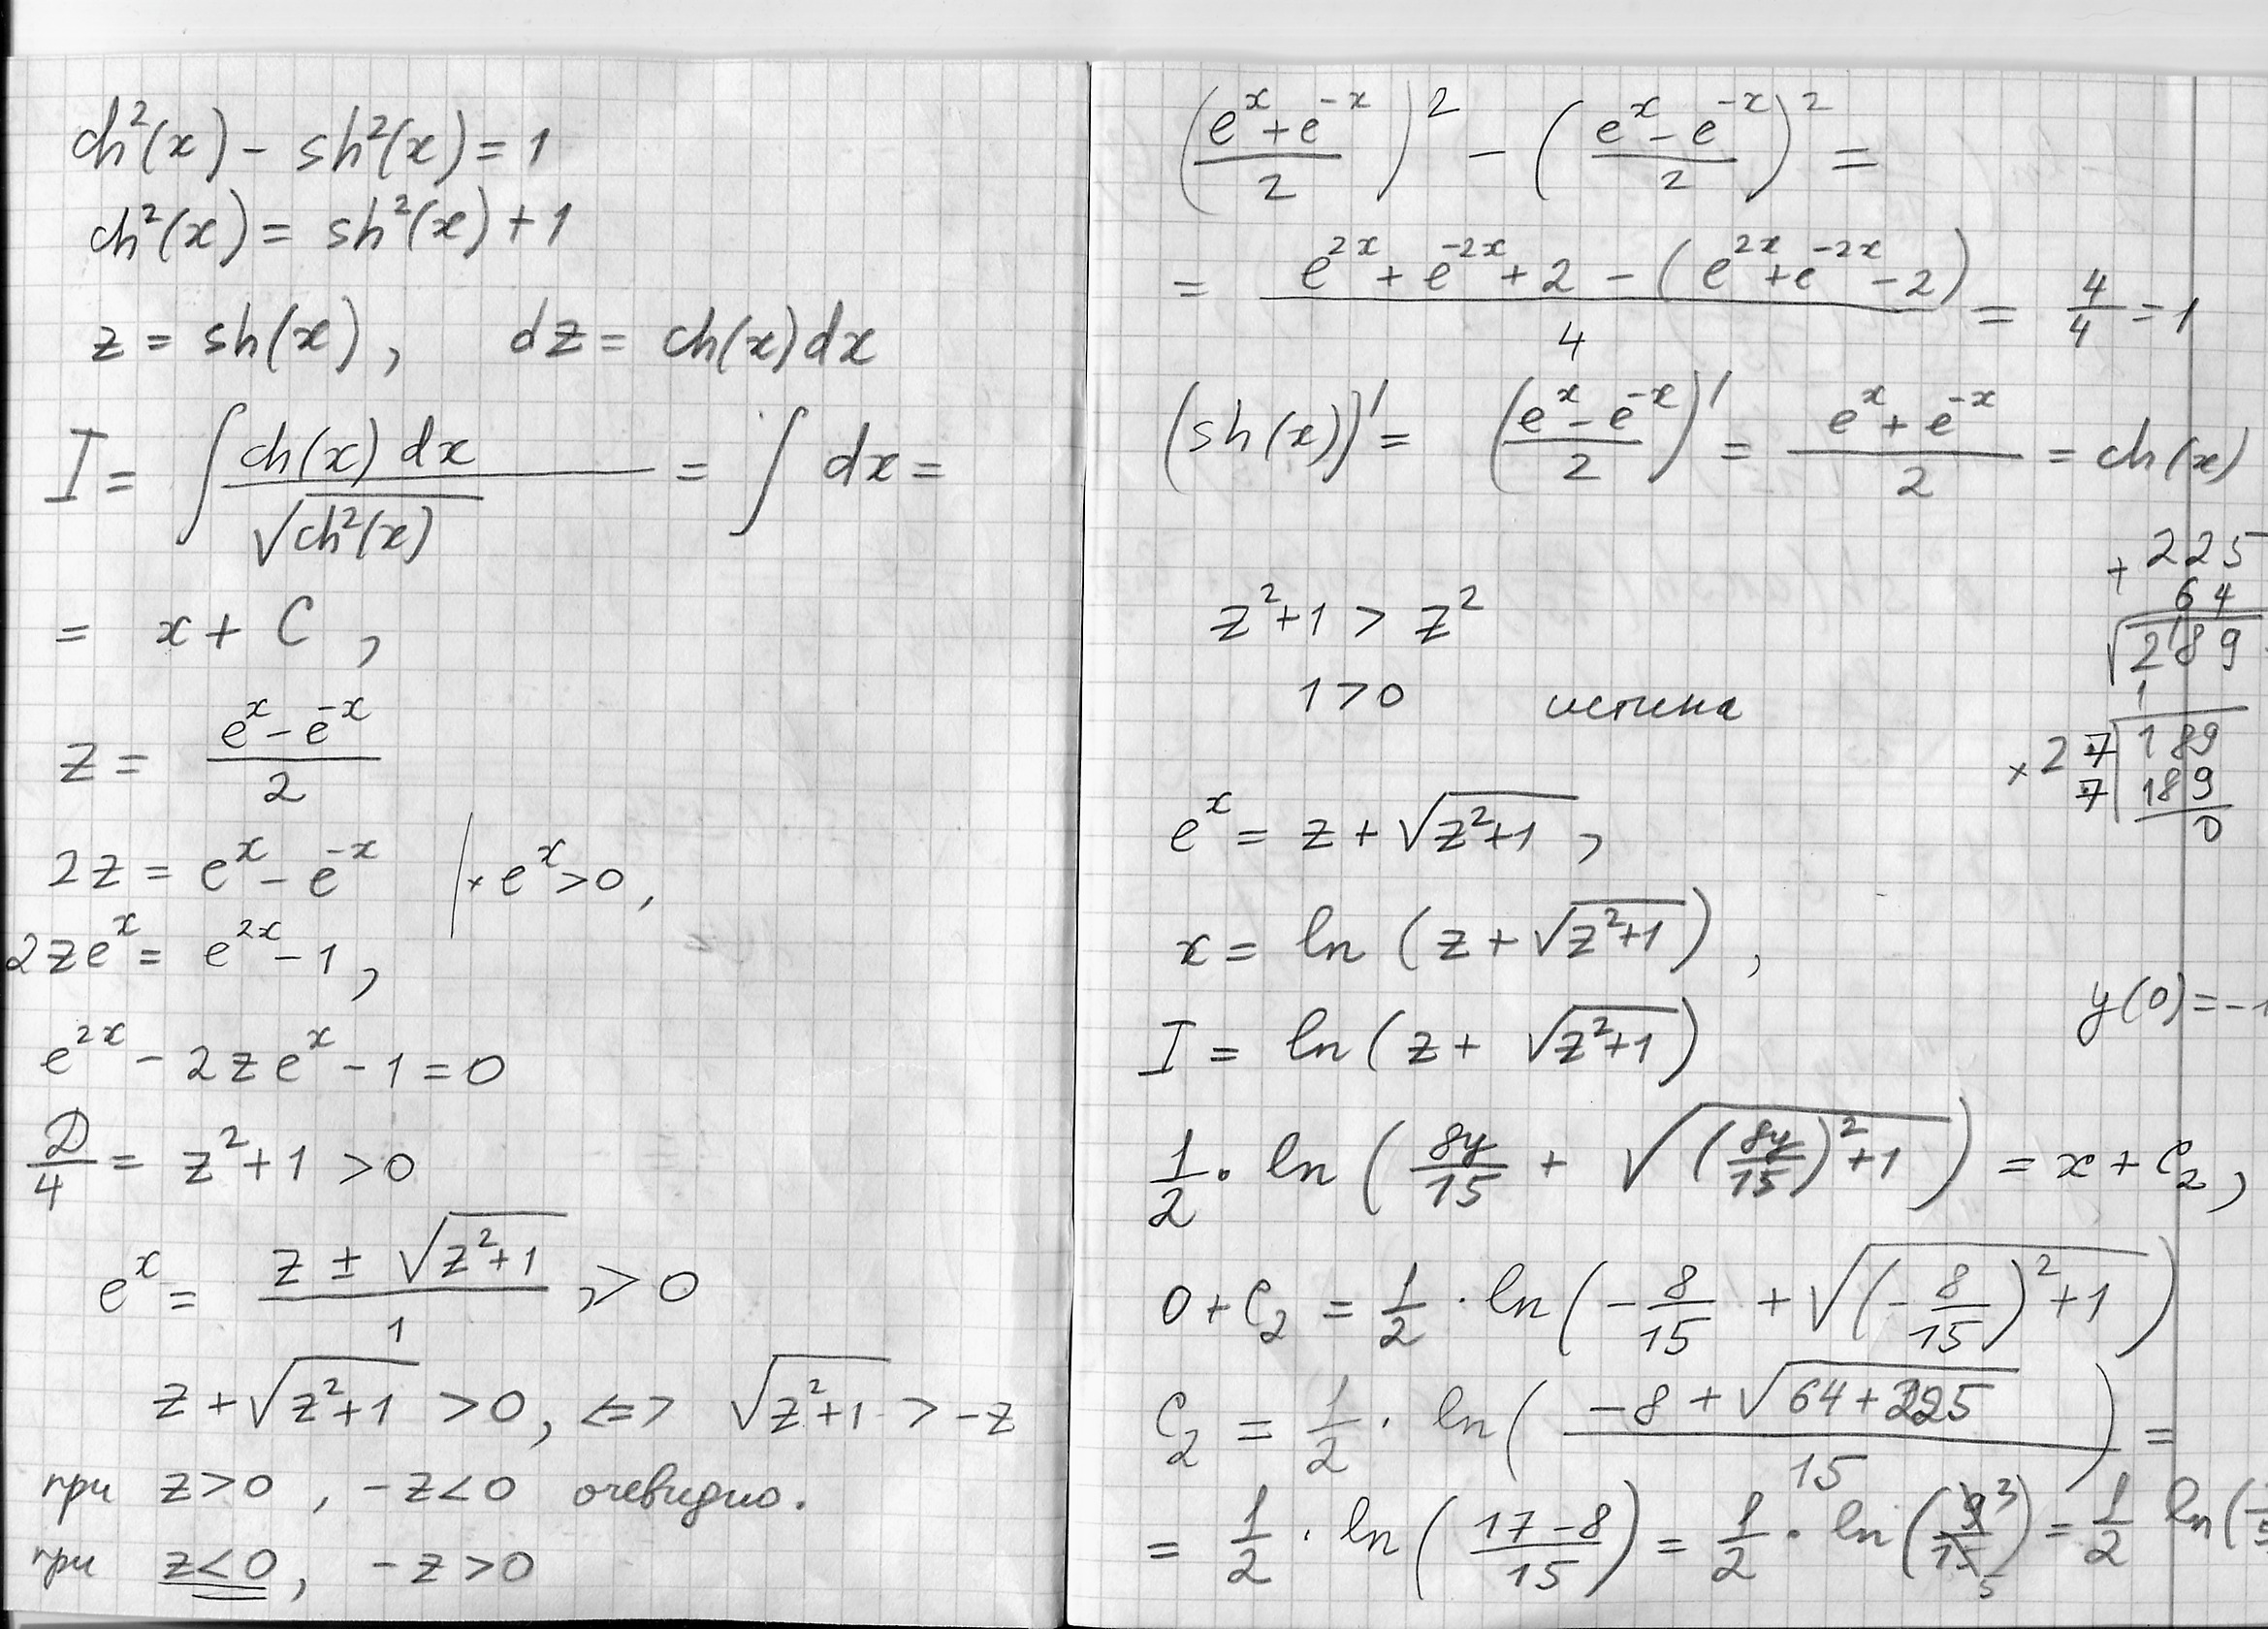 ch²(x) - sh²(x) = 1
ch²(x) = sh²(x) + 1
z = sh(x), dz = ch(x) dx
I = ∫ ch(x) dx / √(ch²(x)) = ∫ dx =
= x + C,
z = (e^x - e^-x) / 2
2z = e^x - e^-x | × e^x > 0,
2ze^x = e^2x - 1,
e^2x - 2ze^x - 1 = 0
D/4 = z² + 1 > 0
e^x = (z ± √(z²+1)) / 1, > 0
z + √(z²+1) > 0, <=> √(z²+1) > -z
при z > 0, -z < 0 очевидно.
при z < 0, -z > 0
((e^x + e^-x) / 2)² - ((e^x - e^-x) / 2)² =
= (e^2x + e^-2x + 2 - (e^2x + e^-2x - 2)) / 4 = 4/4 = 1
(sh(x))' = ((e^x - e^-x) / 2)' = (e^x + e^-x) / 2 = ch(x)
+ 225
64
√289
1
× 27 | 189
7 | 189
0
z² + 1 > z²
1 > 0 истина
e^x = z + √(z²+1),
x = ln(z + √(z²+1)),
y(0) = -1
I = ln(z + √(z²+1))
1/2 · ln(8y/15 + √((8y/15)² + 1)) = x + C₂,
0 + C₂ = 1/2 · ln(-8/15 + √((-8/15)² + 1))
C₂ = 1/2 · ln((-8 + √(64 + 225)) / 15) =
= 1/2 · ln((17 - 8) / 15) = 1/2 · ln(9 3 / 15 5) = 1/2 ln(